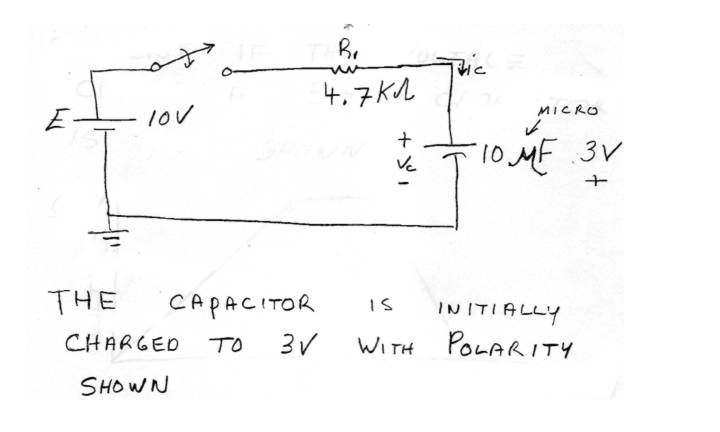 R₁
ic
4.7KΩ
E
10V
MICRO
+
Vc
-
10 μF 3V
+
THE CAPACITOR IS INITIALLY
CHARGED TO 3V WITH POLARITY
SHOWN